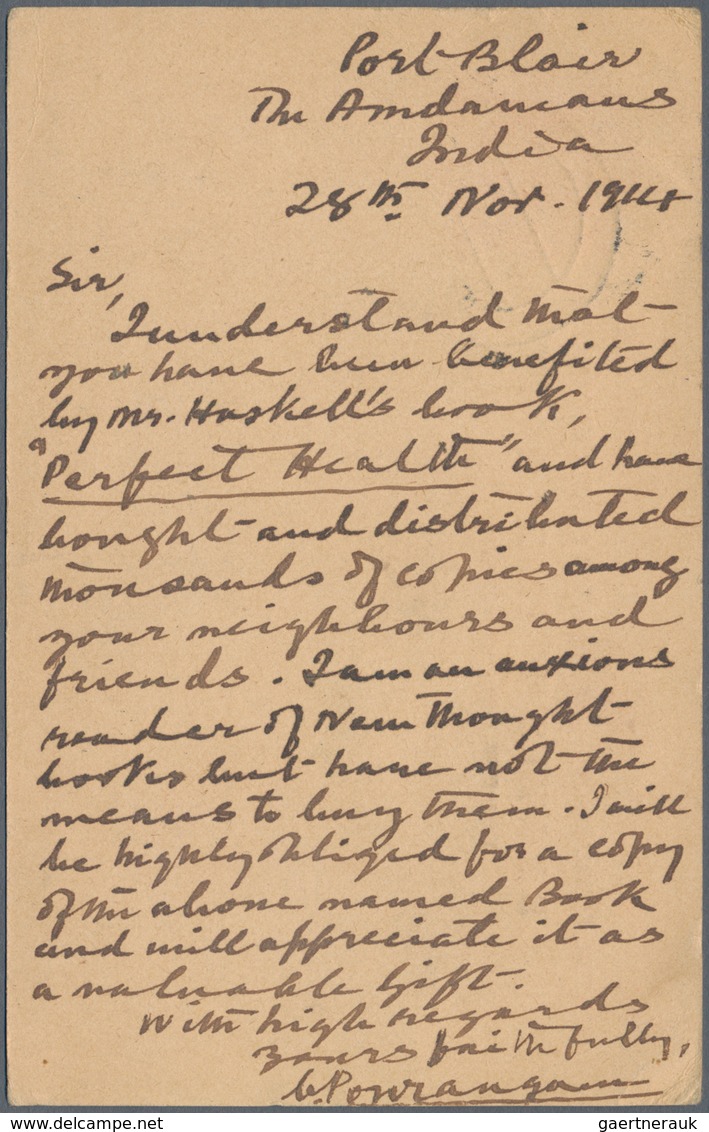 Port Blair
The Amdamans
India
28th Nov. 1914
Sir,
I understand that
you have been benefited
by Mr. Haskell's book,
"Perfect Health" and have
bought and distributed
thousands of copies among
your neighbours and
friends. I am an anxious
reader of New Thought
books but have not the
means to buy them. I will
be highly obliged for a copy
of the above named Book
and will appreciate it as
a valuable Gift.
With high regards
yours faithfully,
gaertnerauk